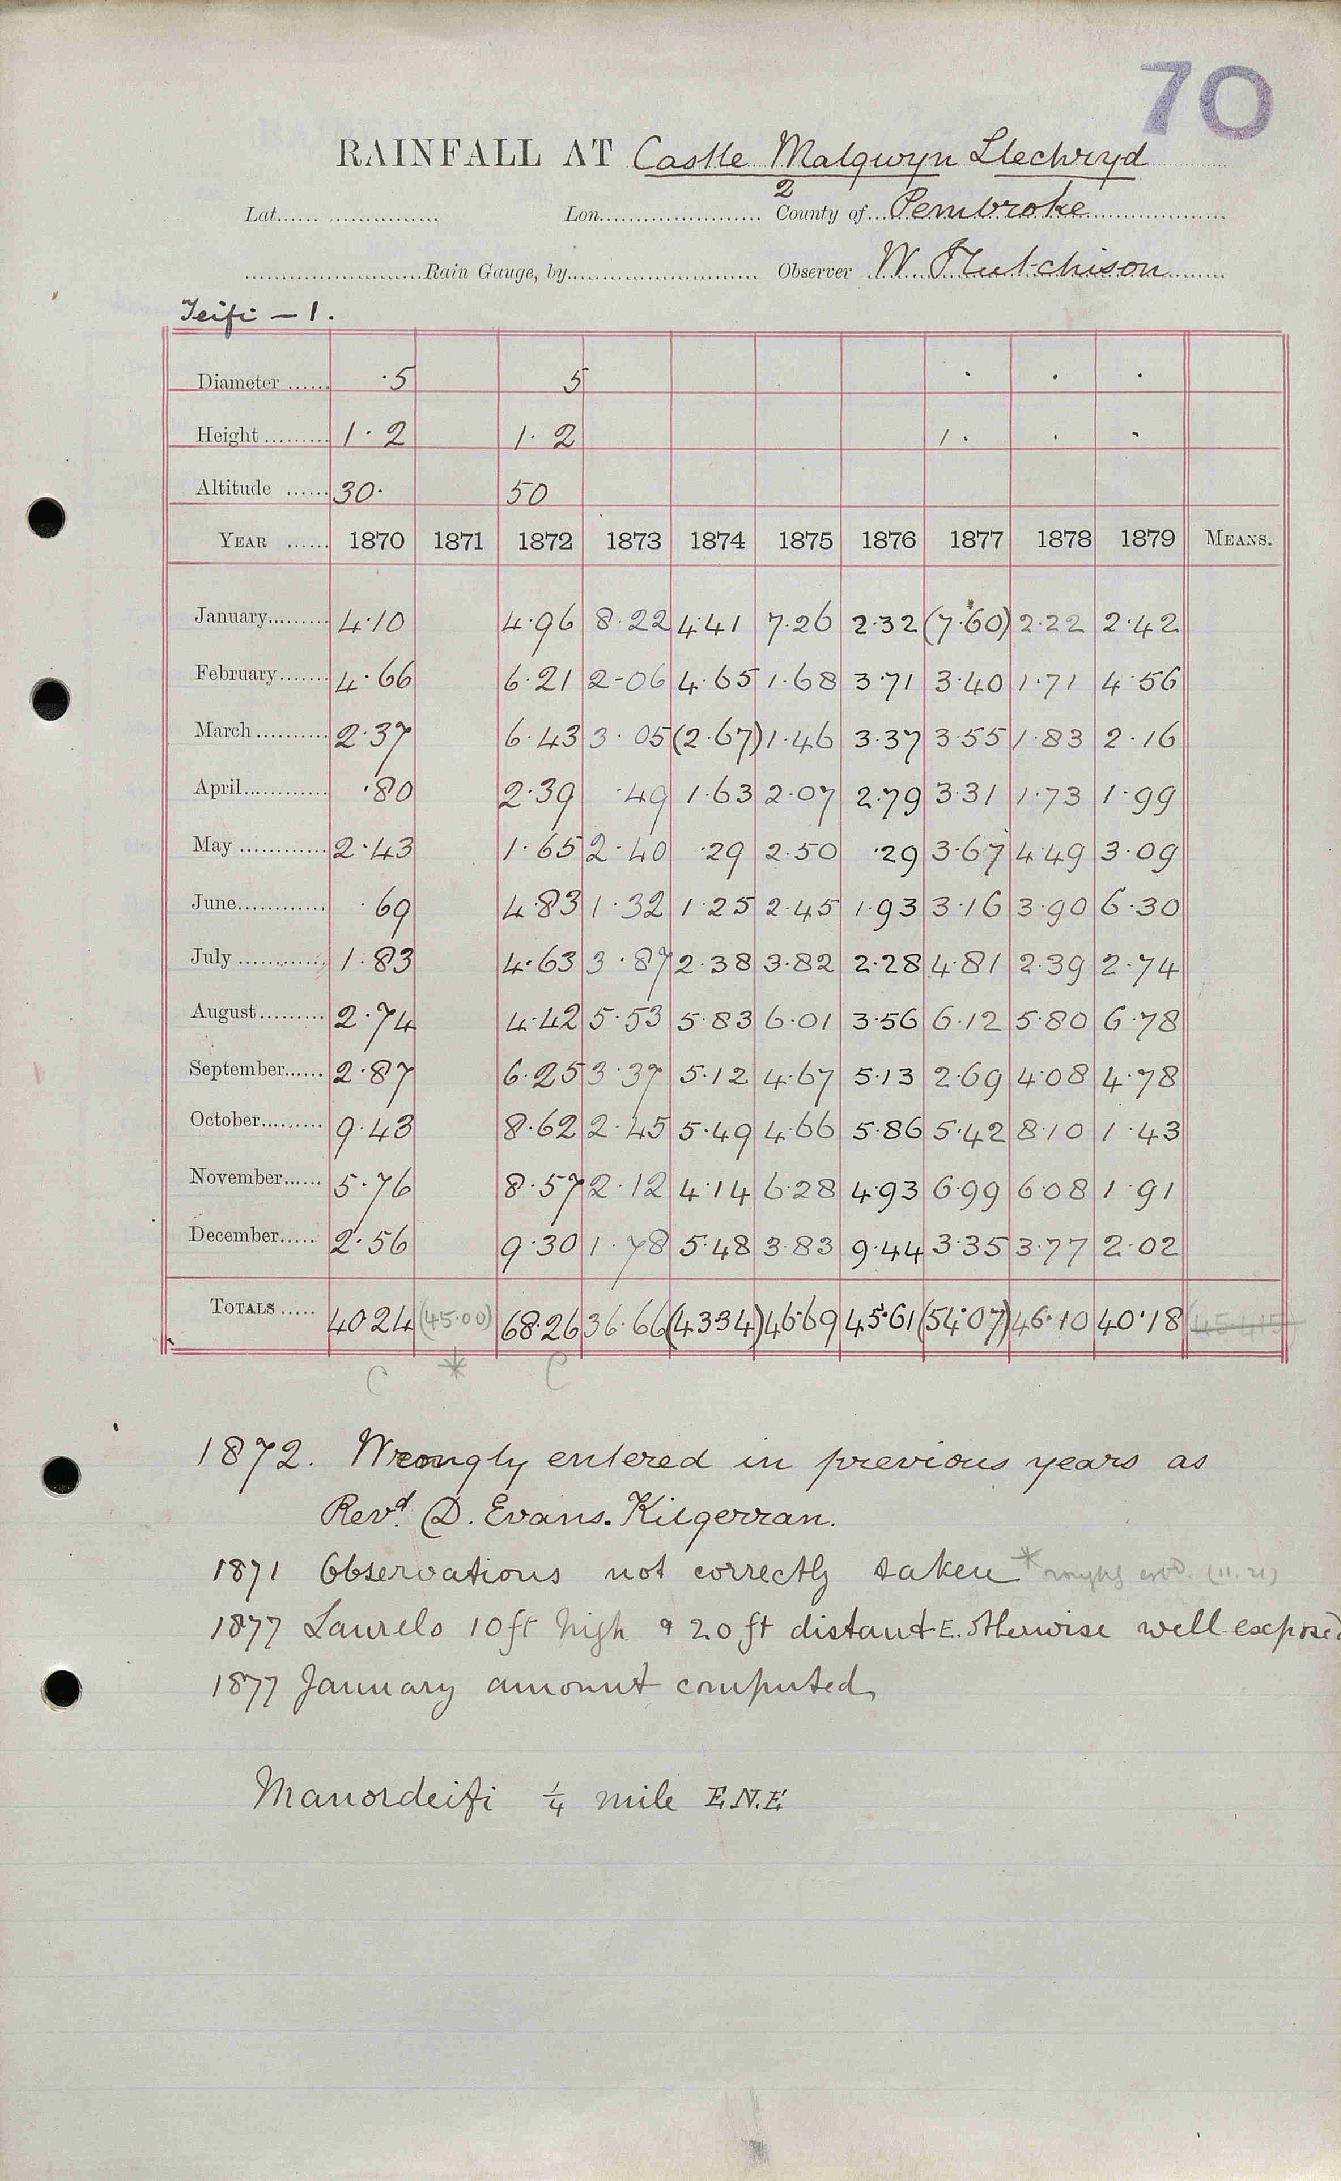 70
RAINFALL AT Castle Malgwyn Llechryd
2
Lat. Lon. County of Pembroke
Rain Gauge, by Observer W. Hutchison
Teifi - 1.
Diameter ...... ·5 5 . . .
Height ......... 1·2 1·2 1. . .
Altitude ...... 30· 50
YEAR ...... 1870 1871 1872 1873 1874 1875 1876 1877 1878 1879 MEANS.
January......... 4·10 4·96 8·22 4·41 7·26 2·32 (7·60) 2·22 2·42
February....... 4·66 6·21 2-06 4·65 1·68 3·71 3·40 1·71 4·56
March .......... 2·37 6·43 3·05 (2·67) 1·46 3·37 3·55 1·83 2·16
April............ ·80 2·39 ·49 1·63 2·07 2·79 3·31 1·73 1·99
May ............ 2·43 1·65 2·40 ·29 2·50 ·29 3·67 4·49 3·09
June............ ·69 4·83 1·32 1·25 2·45 1·93 3·16 3·90 6·30
July ............ 1·83 4·63 3·87 2·38 3·82 2·28 4·81 2·39 2·74
August......... 2·74 4·42 5·53 5·83 6·01 3·56 6·12 5·80 6·78
September...... 2·87 6·25 3·37 5·12 4·67 5·13 2·69 4·08 4·78
October......... 9·43 8·62 2·45 5·49 4·66 5·86 5·42 8·10 1·43
November...... 5·76 8·57 2·12 4·14 6·28 4·93 6·99 6·08 1·91
December..... 2·56 9·30 1·78 5·48 3·83 9·44 3·35 3·77 2·02
TOTALS ..... 40 24 (45·00) 68·26 36·66 (43 34) 46·69 45·61 (54·07) 46·10 40·18 (45·415)
C * C
1872. Wrongly entered in previous years as
Revd. D. Evans. Kilgerran.
1871 Observations not correctly taken *
1877 Laurels 10 ft high & 20 ft distant E. Otherwise well exposed
1877 January amount computed
Manordeifi ¼ mile E.N.E